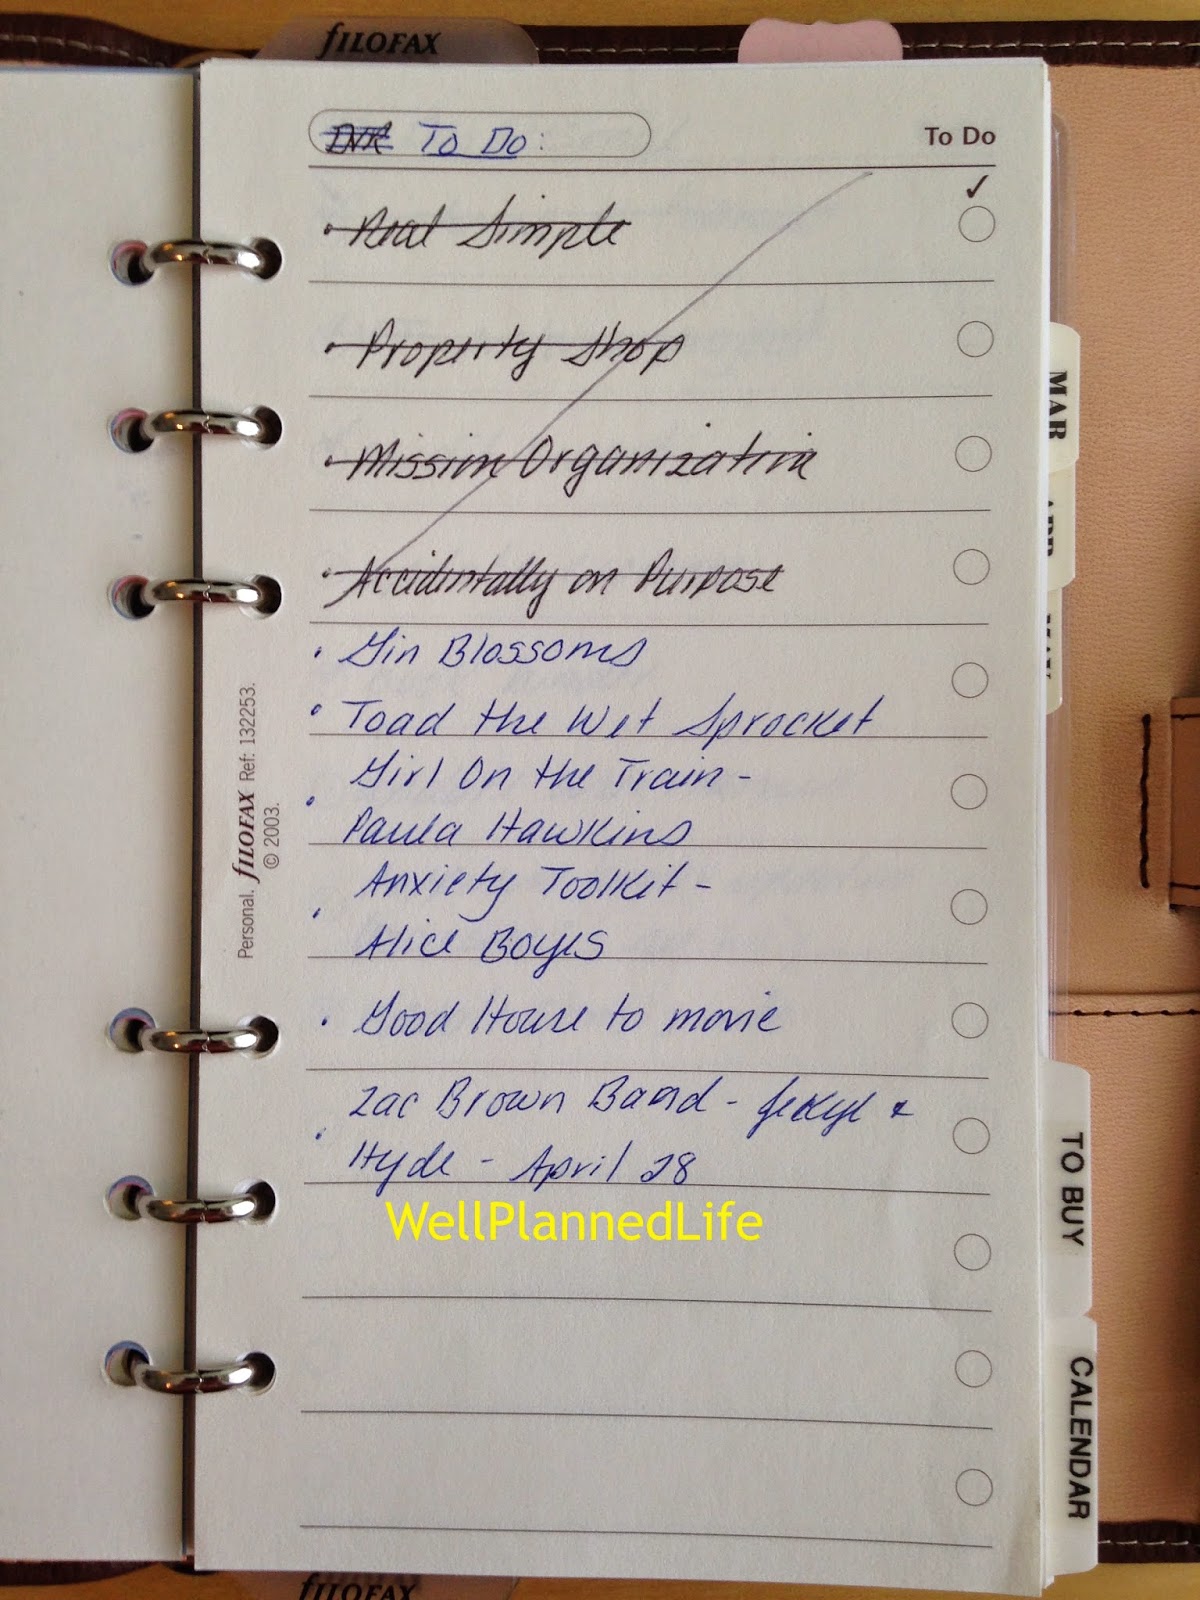 filofax
To Do:
To Do
✓
• Real Simple
• Property Shop
• Mission Organization
• Accidentally on Purpose
• Gin Blossoms
• Toad the Wet Sprocket
Girl On the Train -
• Paula Hawkins
Anxiety Toolkit -
• Alice Boyes
• Good House to movie
Zac Brown Band - Jekyl &
• Hyde - April 28
WellPlannedLife
Personal. filofax Ref: 132253.
© 2003.
MAR
MAY
TO BUY
CALENDAR
filofax